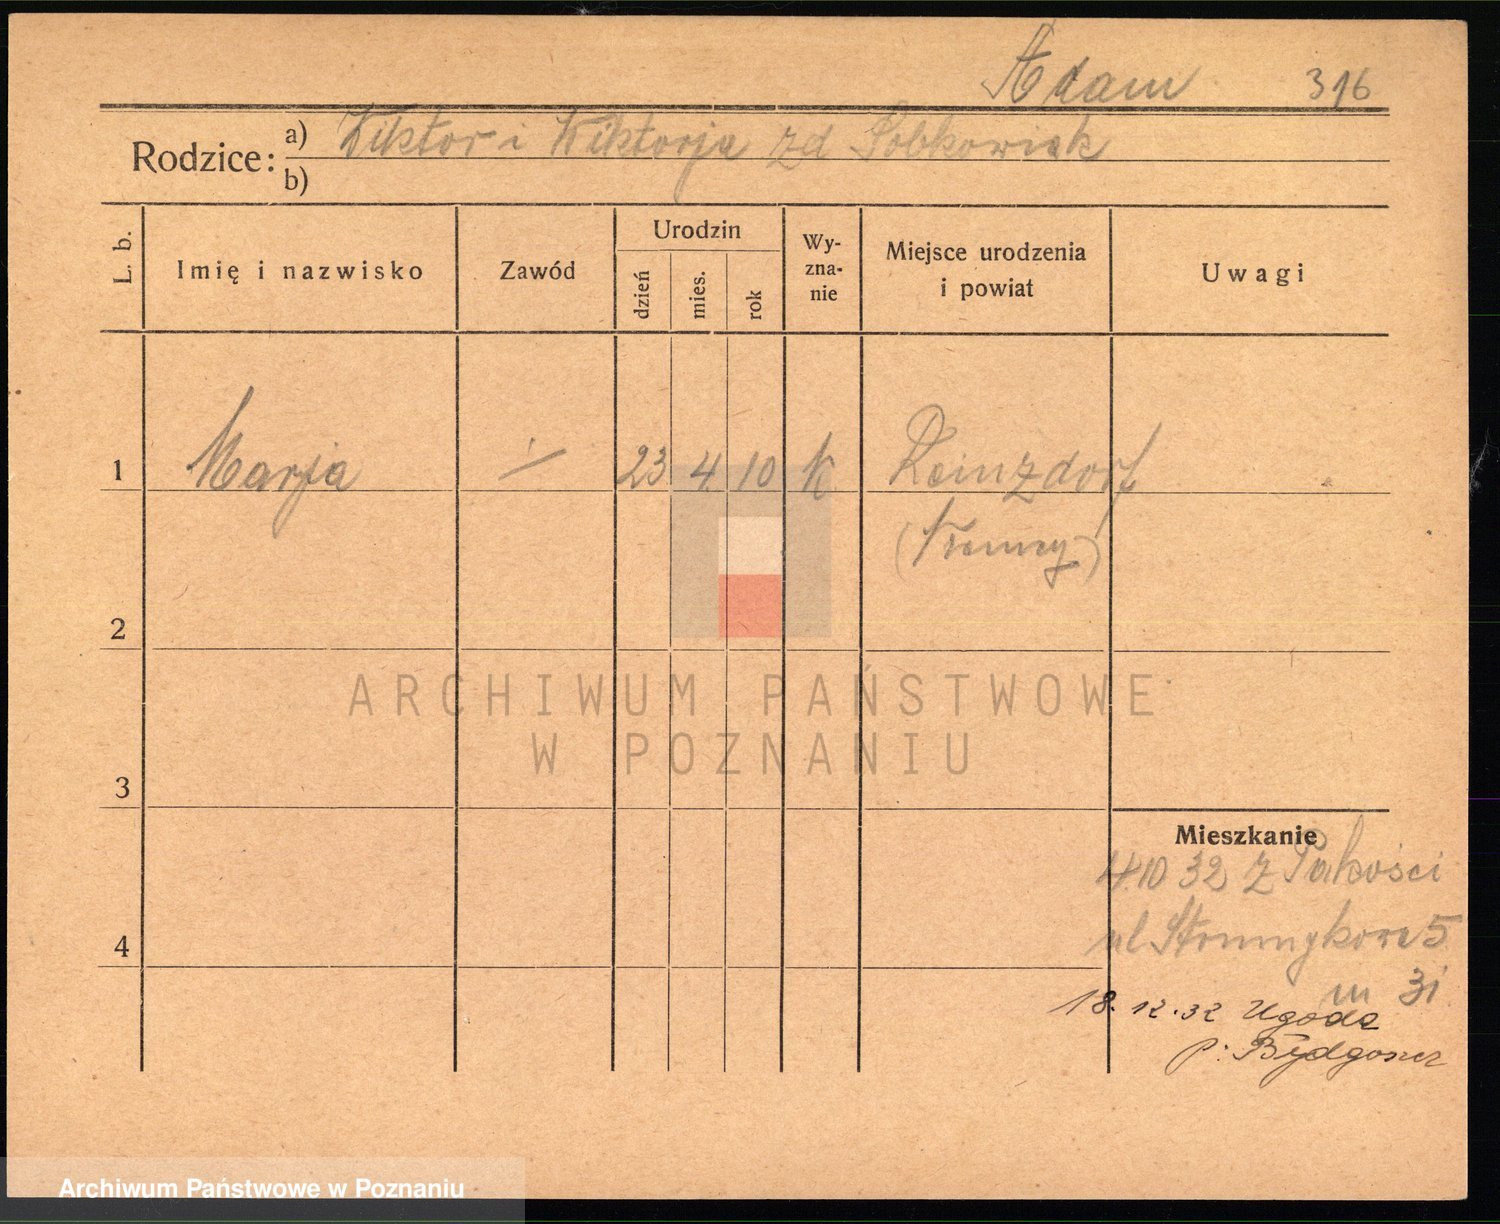 Adam 316
Rodzice: a) Wiktor i Wiktorja zd Sobkowiak
b)
L. b.
Imię i nazwisko
Zawód
Urodzin
dzień
mies.
rok
Wy-
zna-
nie
Miejsce urodzenia
i powiat
Uwagi
1 Marja 23 4 10 k Reinzdorf
(Niemcy)
2
ARCHIWUM PAŃSTWOWE
W POZNANIU
3
Mieszkanie
4.10 32 z Pakości
ul 5
4
m 31
18.12.32 Ugoda
p. Bydgoszcz
Archiwum Państwowe w Poznaniu